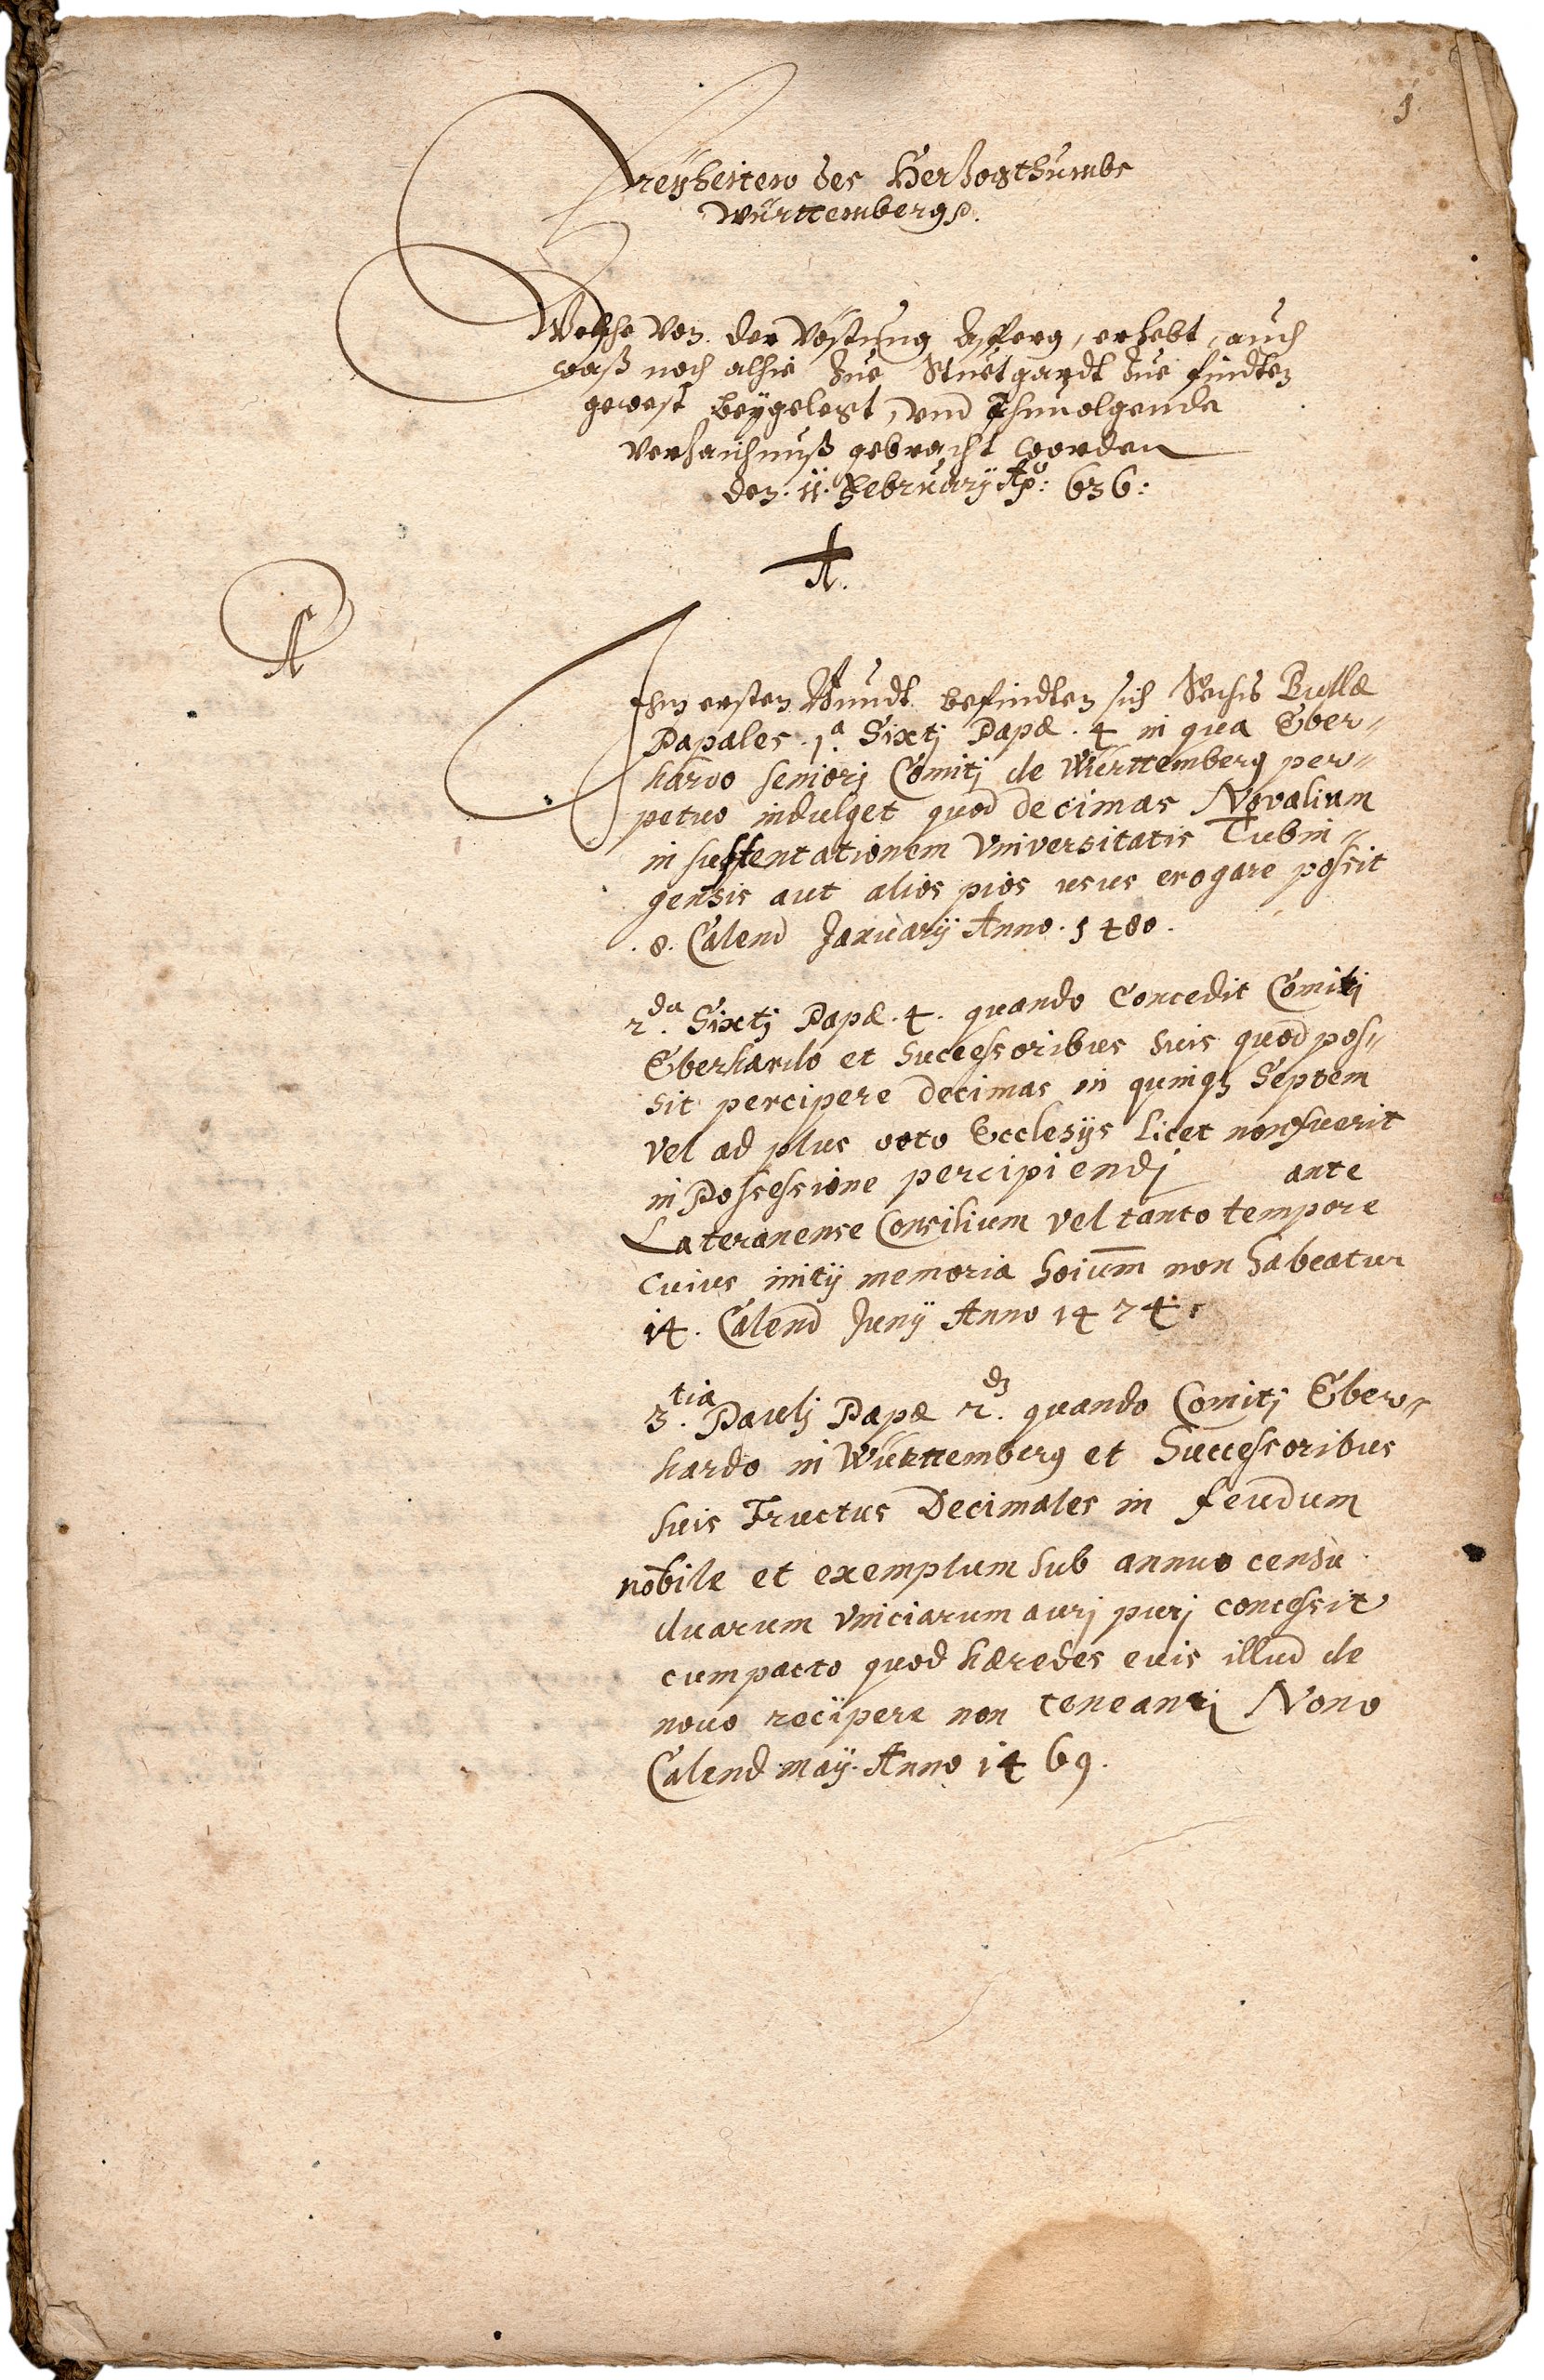 1
Freyheiten des Herzogthumbs
Württembergs.
Welche von der Vöstung Asperg, erhebt, auch
waß noch alhie zue Stuetgardt zue findten
gewest beygelegt, vnd Ihnuolgende
verzaichnuß gebracht worden
den. 11. February Aō: 636:
A.
A
Ihm ersten Bundt befindten sich Sechs Bullæ
Papales. 1.a Sixtj Papæ. 4 in qua Eber〃
hardo seniorj Comitj de Württemberg per〃
petuo indulget quod decimas Novalium
in sustentationem Vniversitatis Tubin〃
gensis aut alios pios usus erogare possit
.8. Calend Januarÿ Anno. 1480.
2.da Sixtj Papæ. 4. quando Concedit Comitj
Eberhardo et Successoribus suis quod pos〃
sit percipere decimas in quinqꝫ Septem
vel ad plus octo Ecclesÿs licet non fuerit
in Possessione percipiendj ante
Lateranense Consilium vel tanto tempore
cuius initÿ memoria hoium̄ non habeatur
14. Calend Junÿ Anno 1474.
3.tia Paulj Papæ 2.dj quando Comitj Eber〃
hardo in Württemberg et Successoribus
suis Fructus Decimales in feudum
nobile et exemptum sub annuo censu
duarum vnciarum aurj purj concessit
cum pacto quod hæredes euis illud de
nouo recipere non teneantj Nono
Calend maÿ. Anno 1469.